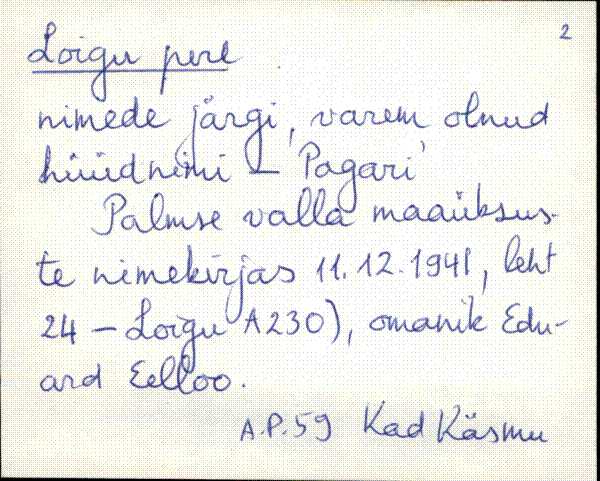 2
Loigu pere
nimede järgi, varem olnud
hüüdnimi – 'Pagari'
Palmse valla maaüksus-
te nimekirjas 11.12.1941, leht
24 – Loigu A230), omanik Edu-
ard Eelloo.
A.P.59 Kad Käsmu